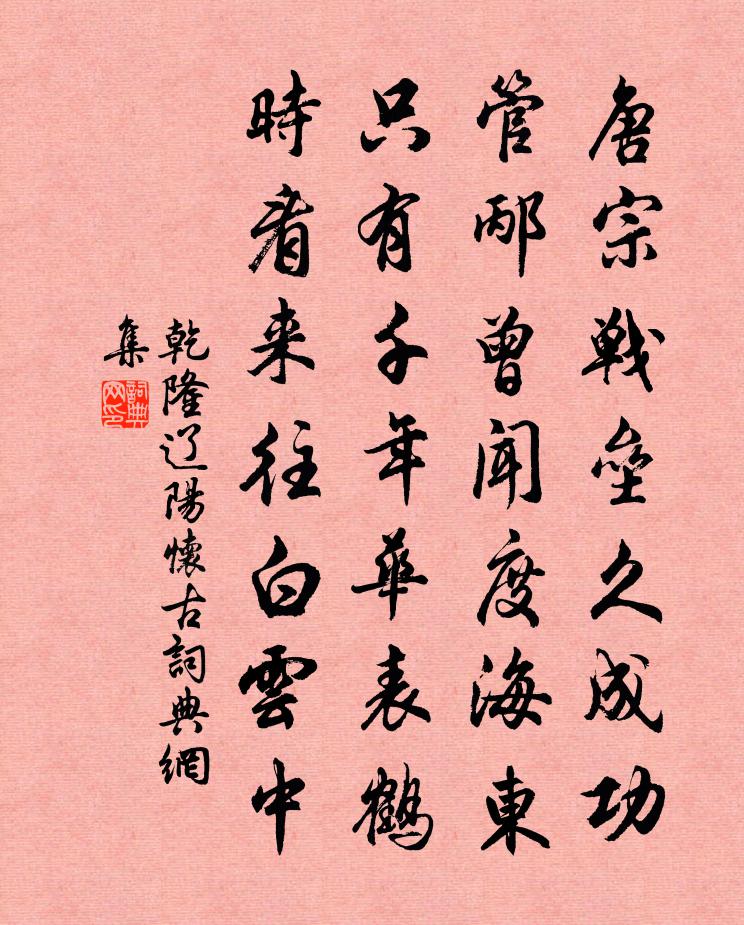 唐宗戰壘久成功
管邴曾聞度海東
只有千年華表鶴
時看来往白雲中
乾隆辽陽懷古詞典網
集
詞典
网印